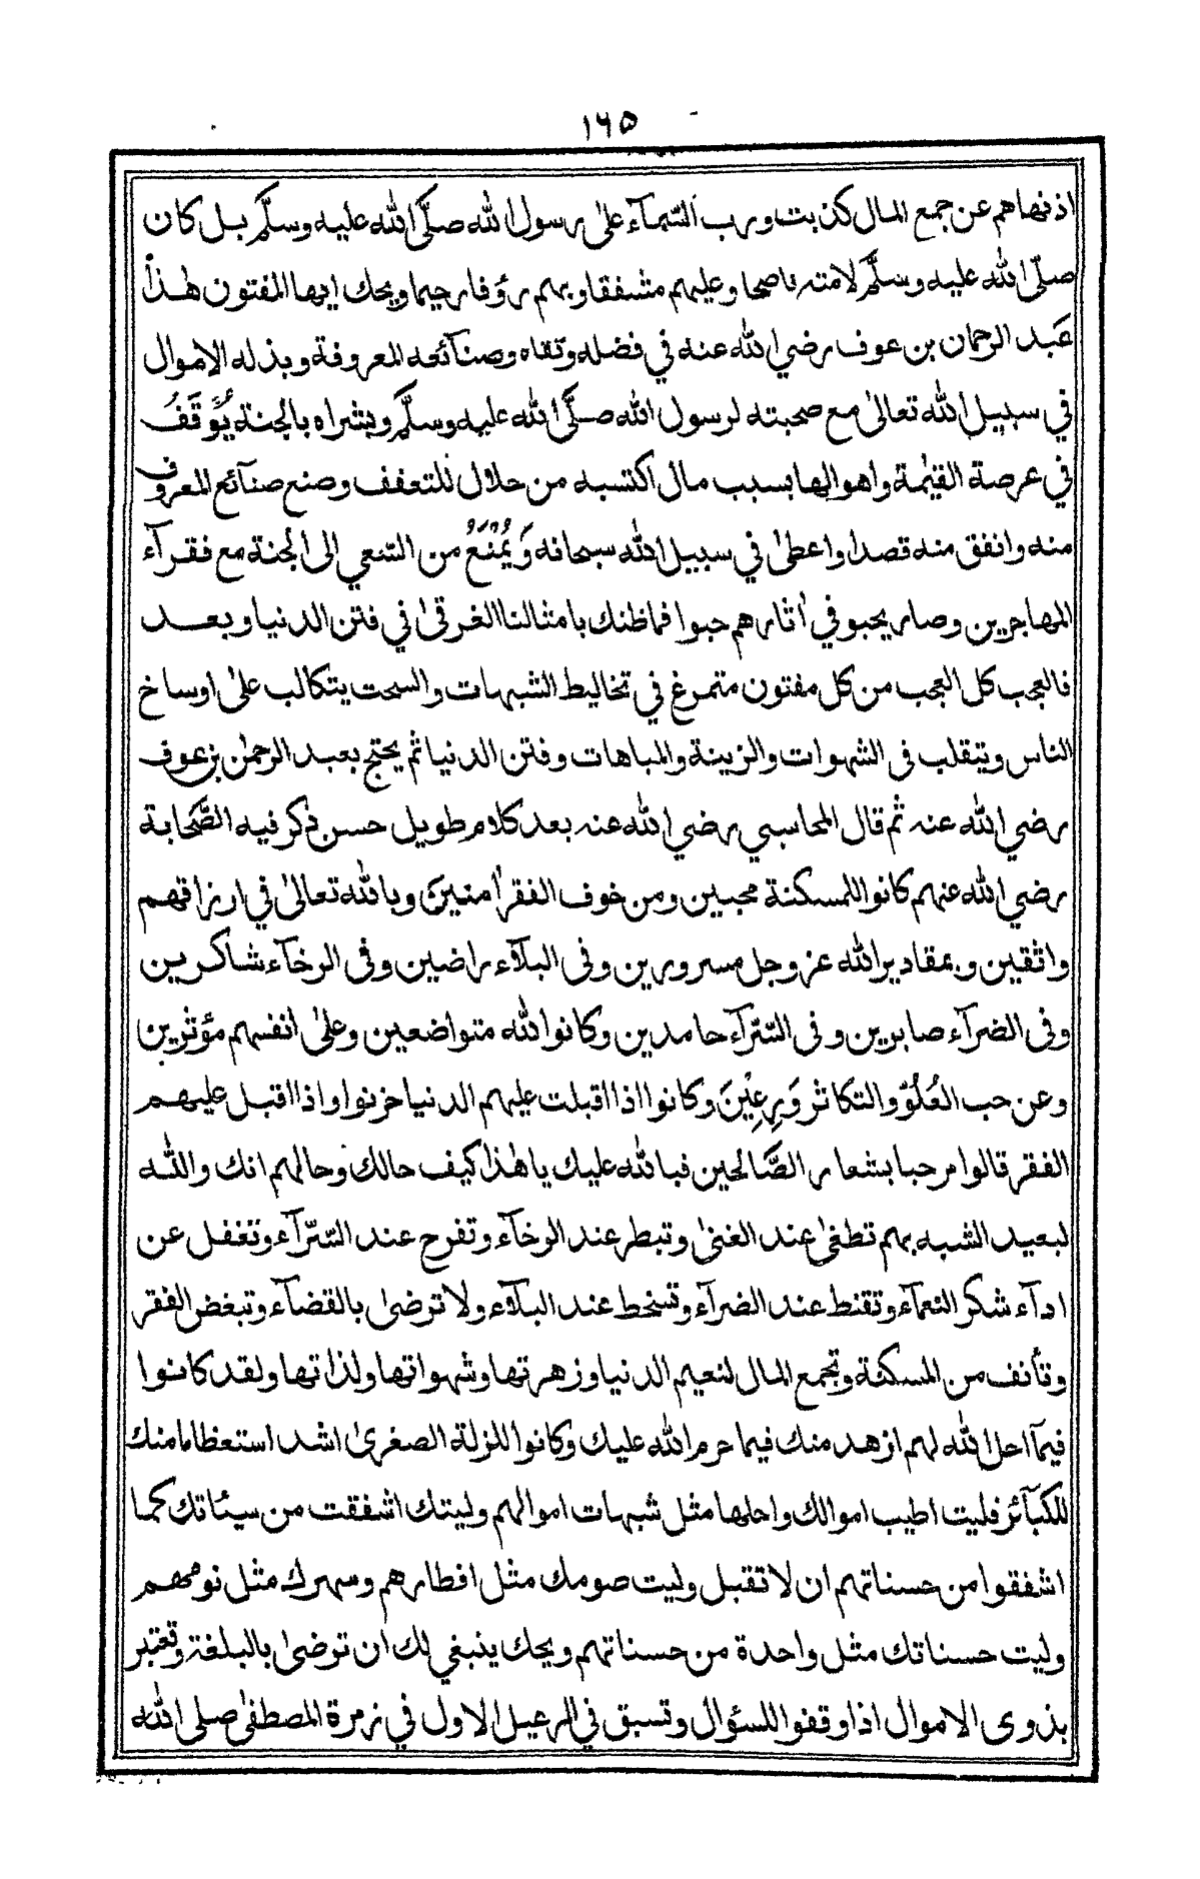 ١٦٥
اذ نهاهم عن جمع المال كذبت ورب السّمآء على رسول الله صلّى الله عليه وسلّم بل كان
صلّى الله عليه وسلّم لامته ناصحا وعليهم مشفقا وبهم رؤفا رحيما ويحك ايها المفتون هذا
عبد الرحمان بن عوف رضي الله عنه في فضله وتقاه وصنآئعه المعروفة وبذله الاموال
في سبيل الله تعالىٰ مع صحبته لرسول الله صلّى الله عليه وسلّم وبشراه بالجنة يُوْقَفُ
في عرصة القيٰمة واهوالها بسبب مال اكتسبه من حلال للتعفف وصنع صنآئع المعروف
منه وانفق منه قصدا واعطىٰ في سبيل الله سبحانه وَيُمْنَعُ من السّعي الى الجنة مع فقرآء
المهاجرين وصار يحبو في اٰثارهم حبوا فما ظنك بامثالنا الغرقىٰ في فتن الدنيا وبعد
فالعجب كل العجب من كل مفتون متمرغ في تخاليط الشبهات والسحت يتكالب علىٰ اوساخ
الناس ويتقلب فى الشهوات والزينة والمباهات وفتن الدنيا ثم يحتج بعبد الرحمٰن بن عوف
رضي الله عنه ثم قال المحاسبي رضي الله عنه بعد كلام طويل حسن ذكر فيه الصَّحابة
رضي الله عنهم كانوا للمسكنة محبين ومن خوف الفقر اٰمنين وبالله تعالىٰ في ارزاقهم
واثقين وبمقادير الله عز وجل مسرورين وفى البلآء راضين وفى الرخآء شاكرين
وفى الضرآء صابرين وفى السّرّآء حامدين وكانوا لله متواضعين وعلىٰ انفسهم مؤثرين
وعن حب العُلُوّ والتكاثر وَرِعِيْنَ وكانوا اذا اقبلت عليهم الدنيا حزنوا واذا اقبل عليهم
الفقر قالوا مرحبا بشعار الصَّالحين فبالله عليك يا هٰذا كيف حالك وحالهم انك والله
لبعيد الشبه بهم تطغىٰ عند الغنىٰ وتبطر عند الرخآء وتفرح عند السّرّآء وتغفل عن
ادآء شكر النعمآء وتقنط عند الضرآء وتسخط عند البلآء ولا ترضىٰ بالقضآء وتبغض الفقر
وتأنف من المسكنة وتجمع المال لنعيم الدنيا وزهرتها وشهواتها ولذاتها ولقد كانوا
فيمآ احل الله لهم ازهد منك فيما حرم الله عليك وكانوا للزلة الصغرىٰ اشد استعظاما منك
للكبآئر فليت اطيب اموالك واحلها مثل شبهات اموالهم وليتك اشفقت من سيئاتك كما
اشفقوا من حسناتهم ان لا تقبل وليت صومك مثل افطارهم وسهرك مثل نومهم
وليت حسناتك مثل واحدة من حسناتهم ويحك ينبغي لك ان ترضىٰ بالبلغة وتعتبر
بذوى الاموال اذا وقفوا للسؤال وتسبق في الرعيل الاول في زمرة المصطفىٰ صلى الله